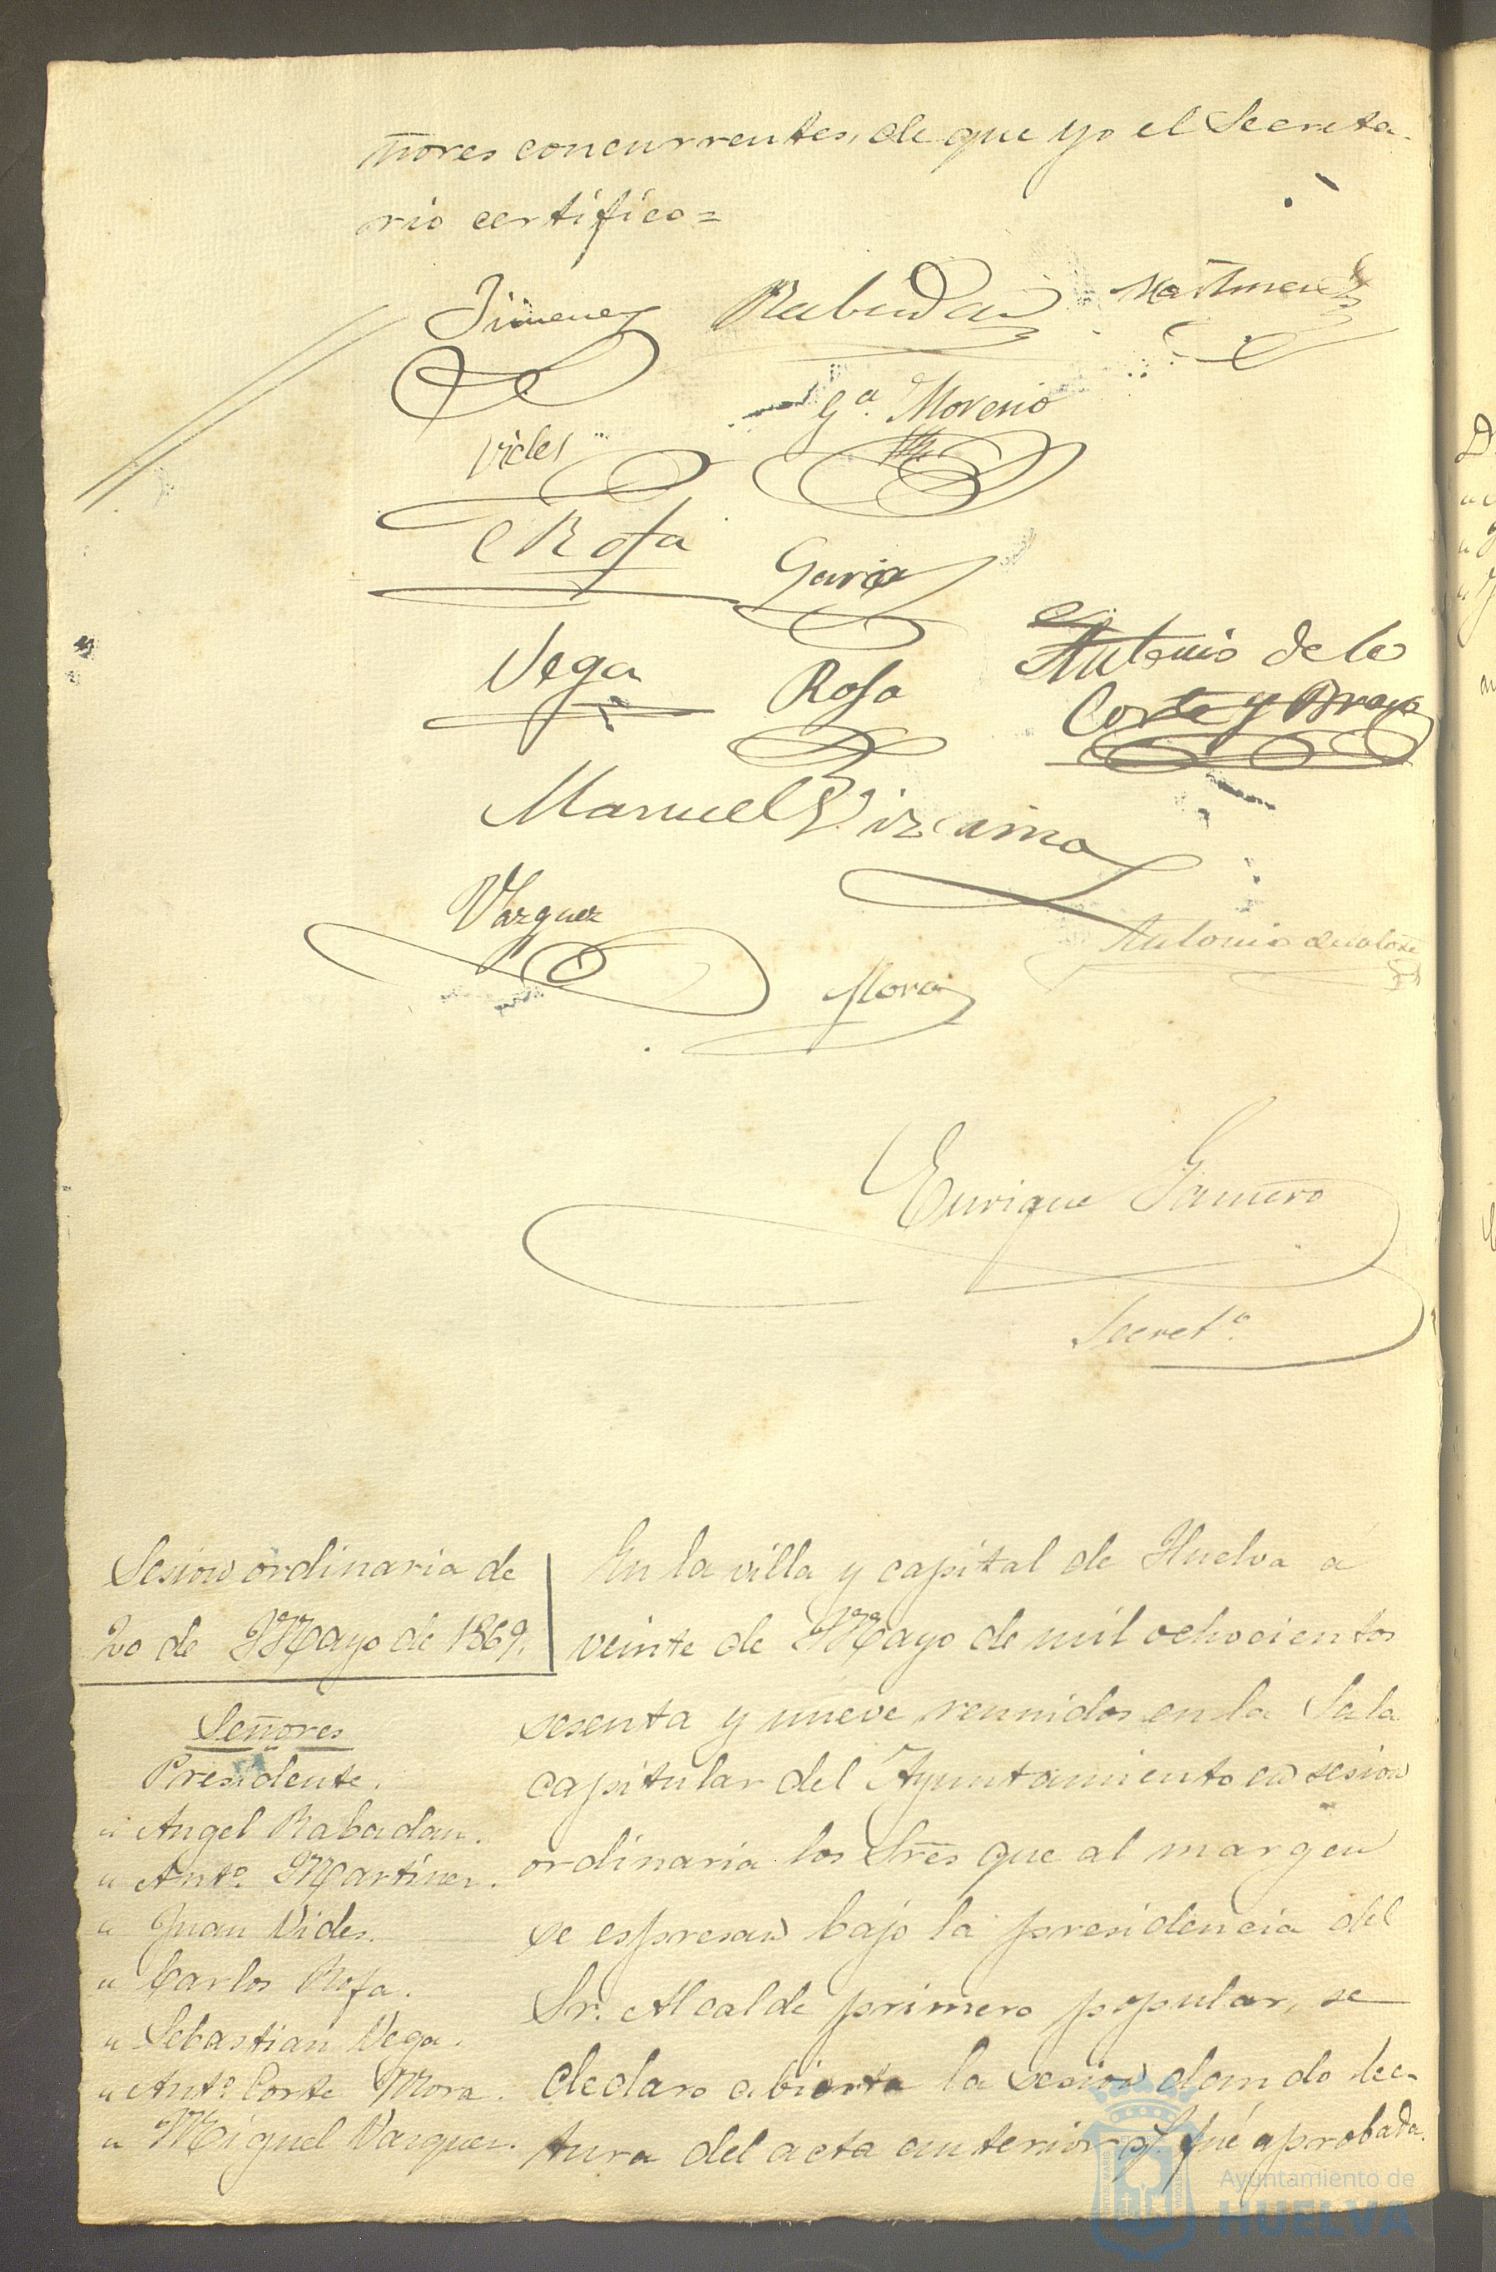 ñores concurrentes, de que yo el Secreta-
rio certifico=
Jimenez Rabadan Martinez
Gª. Moreno
Vides
C Rofa
Garcia
Vega
Rofa
Antonio de la
Corte y Bravo
Manuel Vizcaino
Vazquez
Antonio
Mora
Enrique Gamero
Secretº
Sesion ordinaria de
20 de Mayo de 1869.
Señores
Presidente.
" Angel Rabadan.
" Antº Martinez.
" Juan Vides.
" Carlos Rofa.
" Sebastian Vega.
" Antº Corte Mora.
" Miguel Vazquez.
En la villa y capital de Huelva á
veinte de Mayo de mil ochocientos
sesenta y nueve reunidos en la Sala
capitular del Ayuntamiento en sesion
ordinaria los Sres que al margen
se espresan bajo la presidencia del
Sr. Alcalde primero popular, se
declaro abierta la sesion dando lec-
tura del acta anterior q. fué aprobada.
Ayuntamiento de
HUELVA